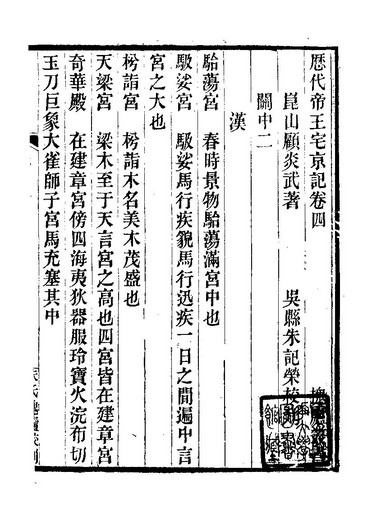 歷代帝王宅京記卷四
崑山顧炎武著 吳縣朱記榮校
關中二
漢
駘蕩宮 春時景物駘蕩滿宮中也
馺娑宮 馺娑馬行疾貌馬行迅疾一日之間遍中言
宮之大也
枍詣宮 枍詣木名美木茂盛也
天梁宮 梁木至于天言宮之高也四宮皆在建章宮
奇華殿 在建章宮傍四海夷狄器服玲寶火浣布切
玉刀巨象大雀師子宮馬充塞其中